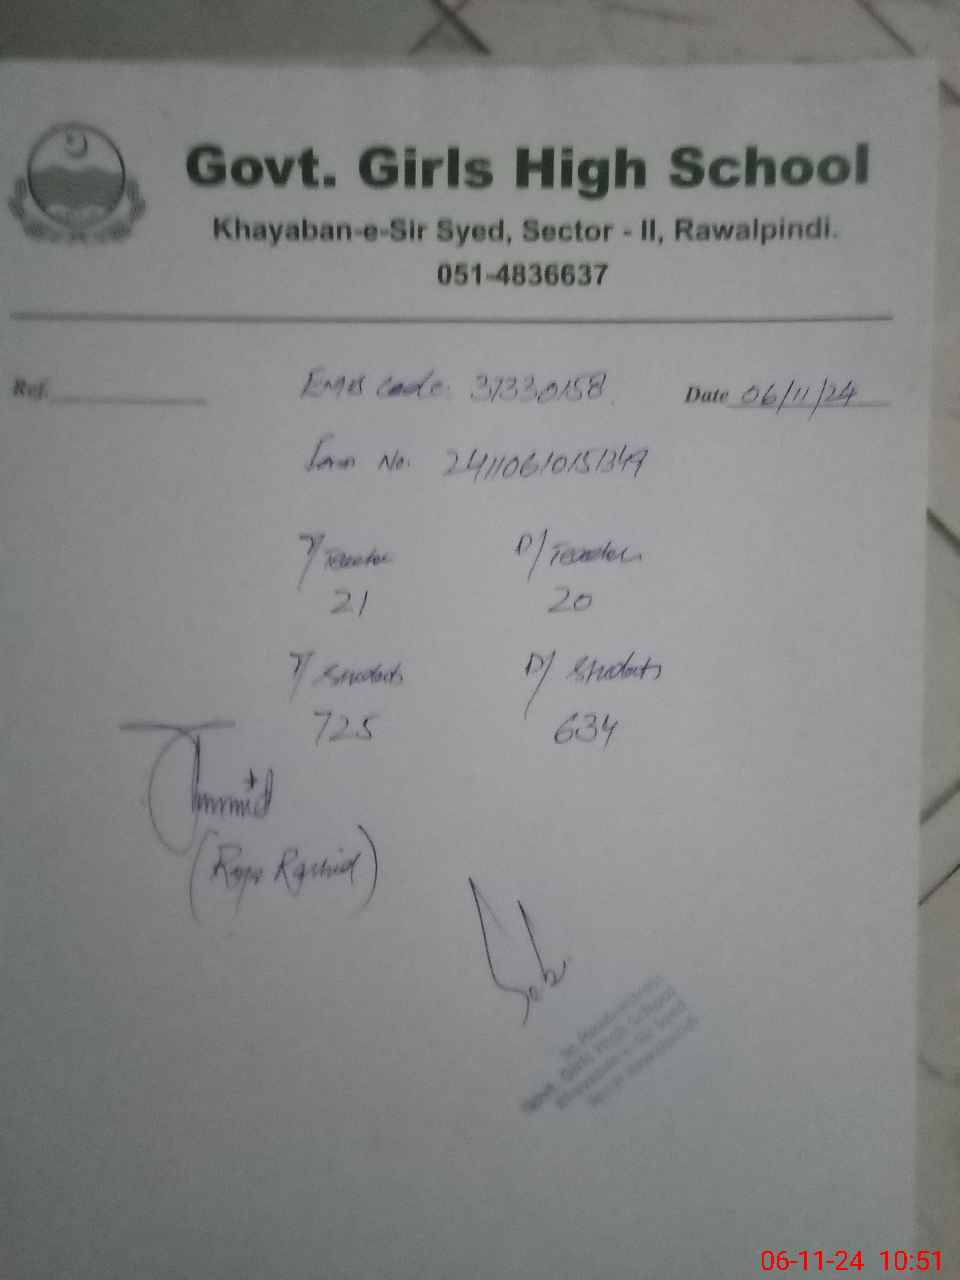 Govt. Girls High School
Khayaban-e-Sir Syed, Sector - II, Rawalpindi.
051-4836637
Ref.
EMIS code: 37330158
Date 06/11/24
Form No. 24110610151349
T/Teacher P/Teacher
21 20
T/Students P/Students
725 634
Govt. Girls High School
06-11-24 10:51